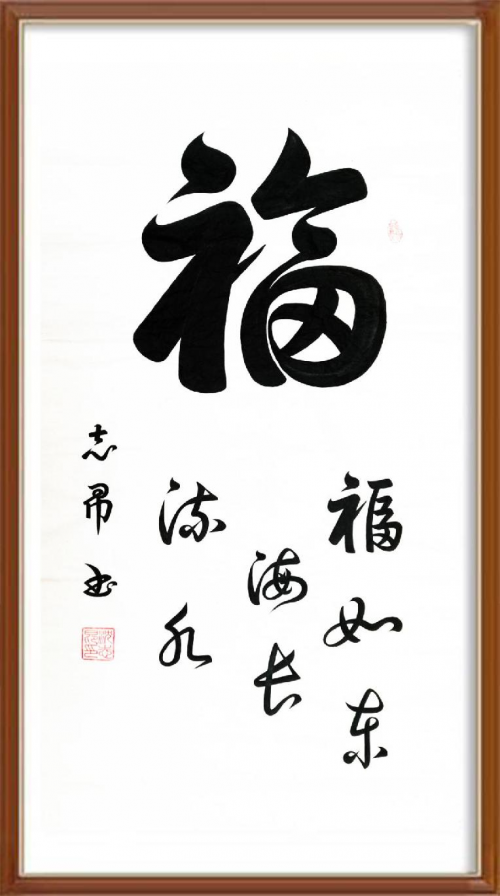 福
福如东
海长
流水
志昂书